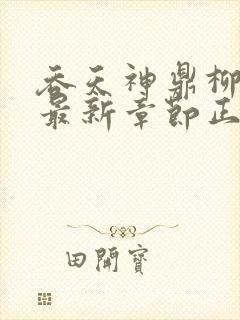 吞天神鼎柳
最新章節正
田開寶